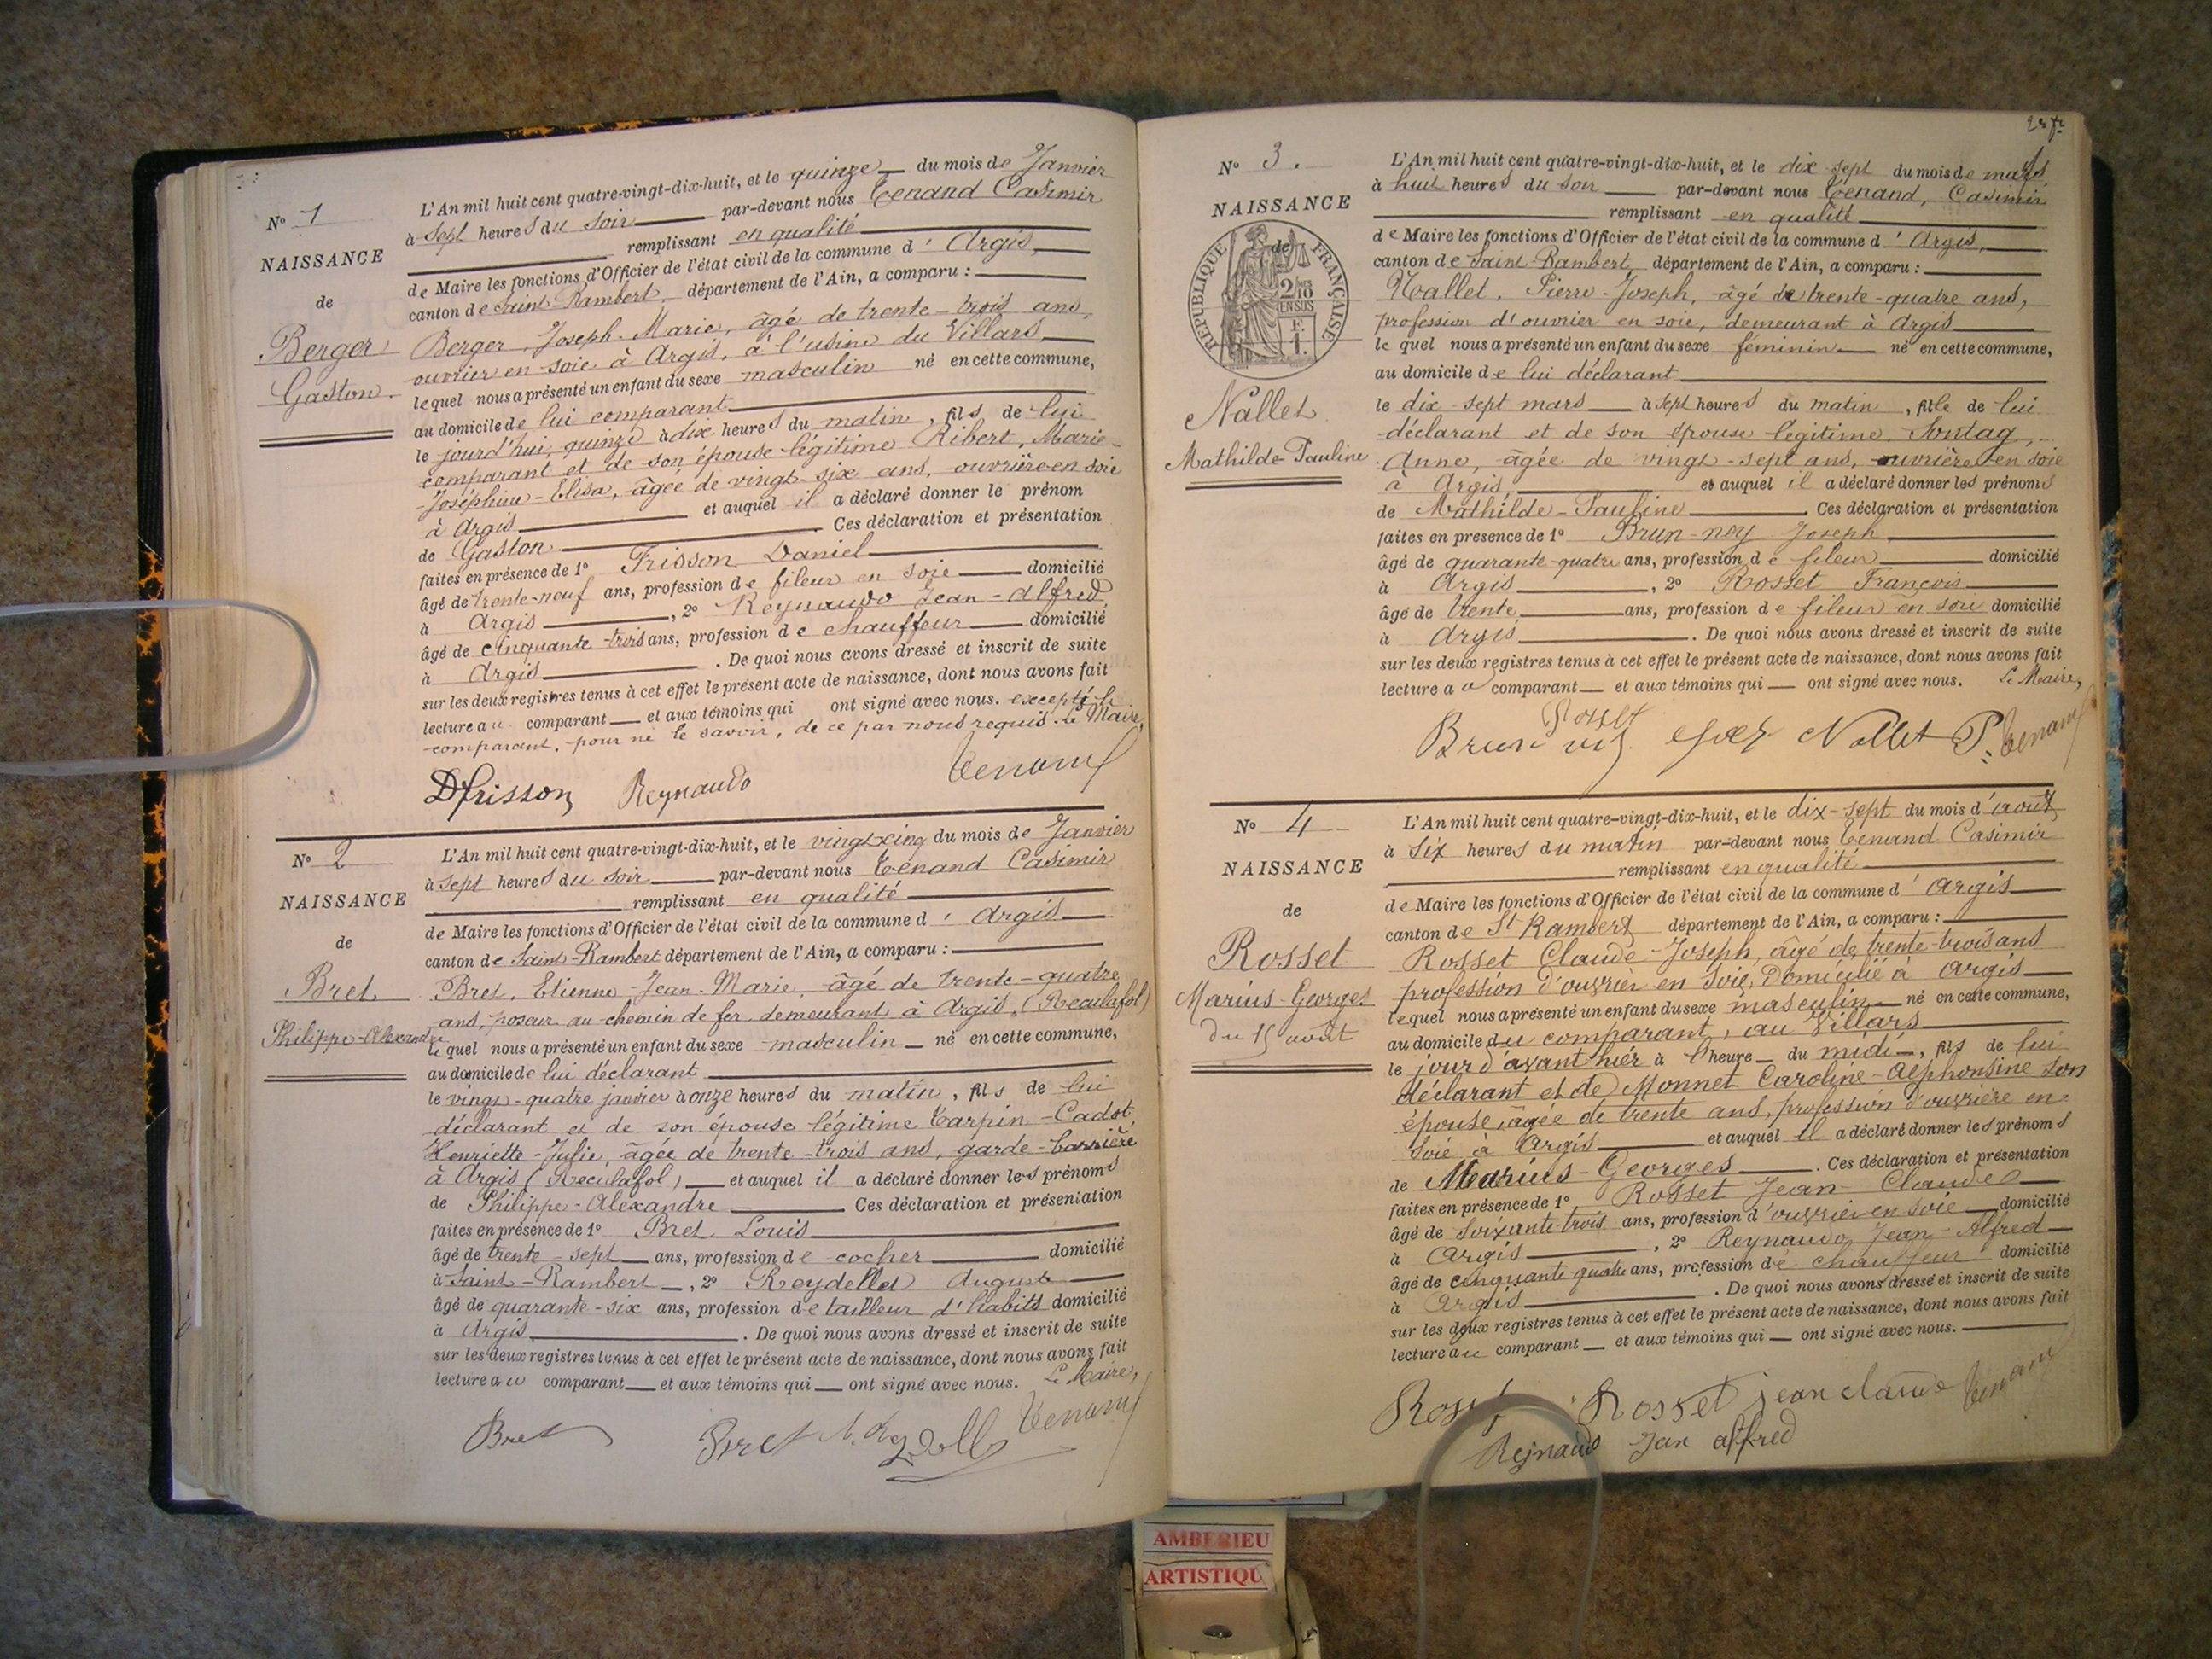 N° 1
NAISSANCE
de
Berger
Gaston
L'An mil huit cent quatre-vingt-dix-huit, et le quinze du mois de Janvier
à sept heures du soir par-devant nous Tenand Casimir
remplissant en qualité
de Maire les fonctions d'Officier de l'état civil de la commune d'Argis,
canton de Saint-Rambert, département de l'Ain, a comparu :
Berger, Joseph-Marie, âgé de trente-trois ans,
ouvrier en soie à Argis, à l'usine du Villars
lequel nous a présenté un enfant du sexe masculin né en cette commune,
au domicile de lui comparant
le jourd'hui, quinze à dix heures du matin, fils de lui
comparant et de son épouse légitime Ribert, Marie-
Joséphine-Elisa, âgée de vingt-six ans, ouvrière en soie
à Argis et auquel il a déclaré donner le prénom
de Gaston Ces déclaration et présentation
faites en présence de 1° Frisson Daniel
âgé de trente-neuf ans, profession de fileur en soie domicilié
à Argis, 2° Reynaudo Jean-Alfred
âgé de cinquante-trois ans, profession de chauffeur domicilié
à Argis. De quoi nous avons dressé et inscrit de suite
sur les deux registres tenus à cet effet le présent acte de naissance, dont nous avons fait
lecture au comparant et aux témoins qui ont signé avec nous. excepté le
comparant, pour ne le savoir, de ce par nous requis. Le Maire,
DFrisson Reynaudo Tenand
N° 2
NAISSANCE
de
Bret
Philippe-Alexandre
L'An mil huit cent quatre-vingt-dix-huit, et le vingt-cinq du mois de Janvier
à sept heures du soir par-devant nous Tenand Casimir
remplissant en qualité
de Maire les fonctions d'Officier de l'état civil de la commune d'Argis
canton de Saint-Rambert département de l'Ain, a comparu :
Bret, Etienne-Jean-Marie, âgé de trente-quatre
ans, poseur au chemin de fer demeurant à Argis, (Reculafol)
le quel nous a présenté un enfant du sexe masculin né en cette commune,
au domicile de lui déclarant
le vingt-quatre janvier à onze heures du matin, fils de lui
déclarant et de son épouse légitime Carpin-Cadot
Henriette-Julie, âgée de trente-trois ans, garde-barrière
à Argis (Reculafol) et auquel il a déclaré donner les prénoms
de Philippe-Alexandre Ces déclaration et présentation
faites en présence de 1° Bret Louis
âgé de trente-sept ans, profession de cocher domicilié
à Saint-Rambert, 2° Reydellet Auguste
âgé de quarante-six ans, profession de tailleur d'habits domicilié
à Argis. De quoi nous avons dressé et inscrit de suite
sur les deux registres tenus à cet effet le présent acte de naissance, dont nous avons fait
lecture au comparant et aux témoins qui ont signé avec nous. Le Maire,
Bret Bret Tenand
N° 3.
NAISSANCE
de
RÉPUBLIQUE FRANÇAISE
2/10
EN SUS
Nallet
Mathilde-Pauline
L'An mil huit cent quatre-vingt-dix-huit, et le dix-sept du mois de mars
à huit heures du soir par-devant nous Tenand, Casimir
remplissant en qualité
de Maire les fonctions d'Officier de l'état civil de la commune d'Argis,
canton de Saint-Rambert, département de l'Ain, a comparu :
Nallet, Pierre-Joseph, âgé de trente-quatre ans,
profession d'ouvrier en soie, demeurant à Argis
le quel nous a présenté un enfant du sexe féminin né en cette commune,
au domicile de lui déclarant
le dix-sept mars à sept heures du matin, fille de lui
déclarant et de son épouse légitime Sontag,
Anne, âgée de vingt-sept ans, ouvrière en soie
à Argis, et auquel il a déclaré donner les prénoms
de Mathilde-Pauline. Ces déclaration et présentation
faites en présence de 1° Brun-ney Joseph
âgé de quarante-quatre ans, profession de fileur domicilié
à Argis, 2° Rosset François
âgé de trente, ans, profession de fileur en soie domicilié
à Argis. De quoi nous avons dressé et inscrit de suite
sur les deux registres tenus à cet effet le présent acte de naissance, dont nous avons fait
lecture au comparant et aux témoins qui ont signé avec nous. Le Maire,
Rosset
Brun Nallet P. Tenand
N° 4
NAISSANCE
de
Rosset
Marius-Georges
du 15 août
L'An mil huit cent quatre-vingt-dix-huit, et le dix-sept du mois d'août
à six heures du matin par-devant nous Tenand Casimir
remplissant en qualité
de Maire les fonctions d'Officier de l'état civil de la commune d'Argis
canton de St Rambert département de l'Ain, a comparu :
Rosset Claude-Joseph, âgé de trente-trois ans
profession d'ouvrier en soie, domicilié à Argis
lequel nous a présenté un enfant du sexe masculin né en cette commune,
au domicile du comparant, au Villars
le jour d'avant hier à heure du midi, fils de lui
déclarant et de Monnet Caroline-Alphonsine son
épouse, âgée de trente ans, profession d'ouvrière en
soie à Argis et auquel il a déclaré donner les prénoms
de Marius-Georges. Ces déclaration et présentation
faites en présence de 1° Rosset Jean-Claude
âgé de soixante-trois ans, profession d'ouvrier en soie domicilié
à Argis, 2° Reynaudo Jean-Alfred
âgé de cinquante quatre ans, profession de chauffeur domicilié
à Argis. De quoi nous avons dressé et inscrit de suite
sur les deux registres tenus à cet effet le présent acte de naissance, dont nous avons fait
lecture au comparant et aux témoins qui ont signé avec nous.
Rosset Rosset jean claude Tenand
Rejnaudo Jan alfred
AMBERIEU
ARTISTIQU